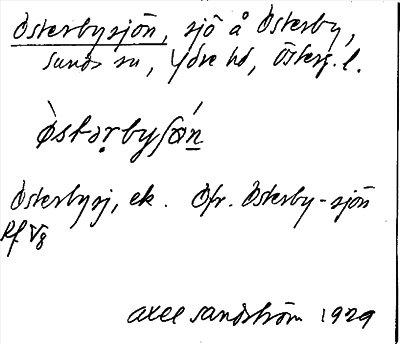 Österbysjön, sjö å Österby,
Sunds sn, Ydre hd, Österg. l.
Òstərbyʃǿn
Österbysj, ek. Ofr. Österby-sjön
Rf V8
Axel Sandström 1929